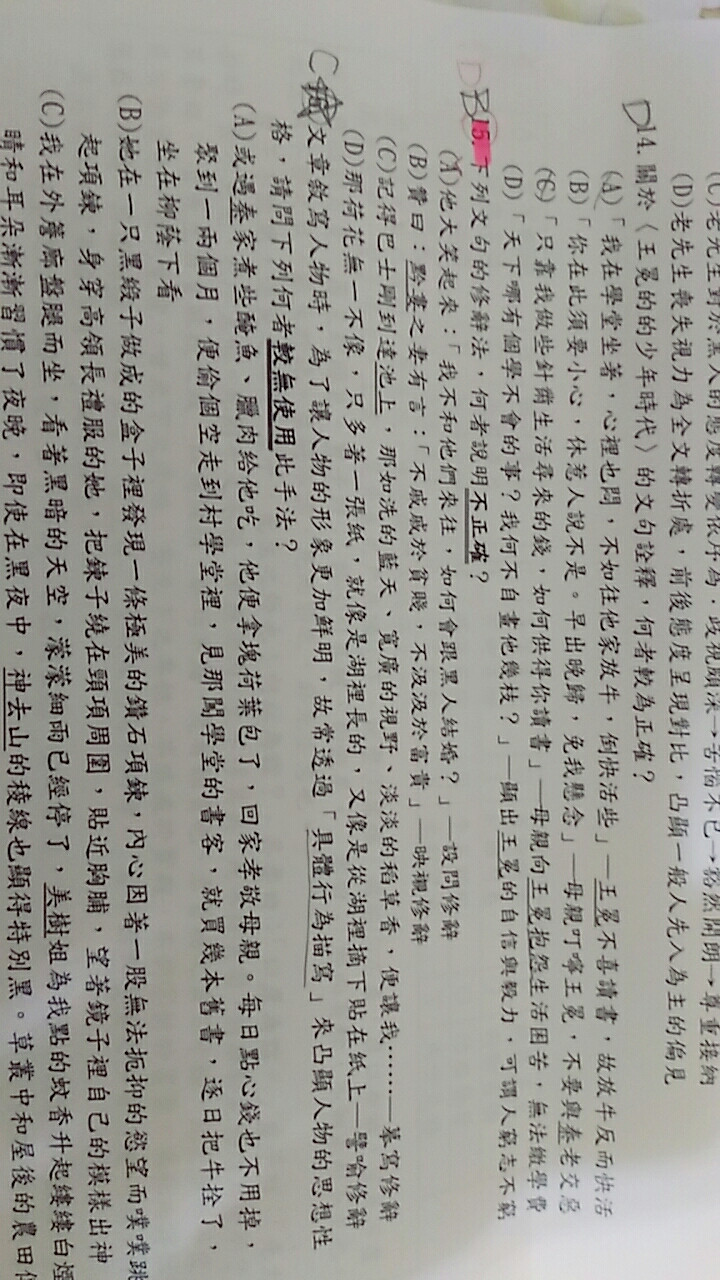 (C)老先生對於黑人的態度轉變依序為：歧視願深→苦惱不已→豁然開朗→尊重接納
(D)老先生喪失視力為全文轉折處，前後態度呈現對比，凸顯一般人先入為主的偏見
D14. 關於〈王冕的的少年時代〉的文句詮釋，何者較為正確？
(A)「我在學堂坐著，心裡也悶，不如往他家放牛，倒快活些」—王冕不喜讀書，故放牛反而快活
(B)「你在此須要小心，休惹人說不是。早出晚歸，免我懸念」—母親叮嚀王冕，不要與秦老交惡
(C)「只靠我做些針黹生活尋來的錢，如何供得你讀書」—母親向王冕抱怨生活困苦，無法繳學費
(D)「天下哪有個學不會的事？我何不自畫他幾枝？」—顯出王冕的自信與毅力，可謂人窮志不窮
D
B 15. 下列文句的修辭法，何者說明不正確？
(A)他大笑起來：「我不和他們來往，如何會跟黑人結婚？」—設問修辭
(B)贊曰：黔婁之妻有言：「不戚戚於貧賤，不汲汲於富貴」—映襯修辭
(C)記得巴士剛到達池上，那如洗的藍天、寬廣的視野、淡淡的稻草香，便讓我……—摹寫修辭
(D)那荷花無一不像，只多著一張紙，就像是湖裡長的，又像是從湖裡摘下貼在紙上—譬喻修辭
C 文章敘寫人物時，為了讓人物的形象更加鮮明，故常透過「具體行為描寫」來凸顯人物的思想性
格，請問下列何者較無使用此手法？
(A)或遇秦家煮些醃魚、臘肉給他吃，他便拿塊荷葉包了，回家孝敬母親。每日點心錢也不用掉，
聚到一兩個月，便偷個空走到村學堂裡，見那闖學堂的書客，就買幾本舊書，逐日把牛拴了，
坐在柳蔭下看
(B)她在一只黑緞子做成的盒子裡發現一條極美的鑽石項鍊，內心因著一股無法扼抑的慾望而噗噗跳
起項鍊，身穿高領長禮服的她，把鍊子繞在頸項周圍，貼近胸脯，望著鏡子裡自己的模樣出神
(C)我在外簷廊盤腿而坐，看著黑暗的天空，濛濛細雨已經停了，美樹姐為我點的蚊香升起縷縷白煙
睛和耳朵漸漸習慣了夜晚，即使在黑夜中，神去山的稜線也顯得特別黑。草叢中和屋後的農田